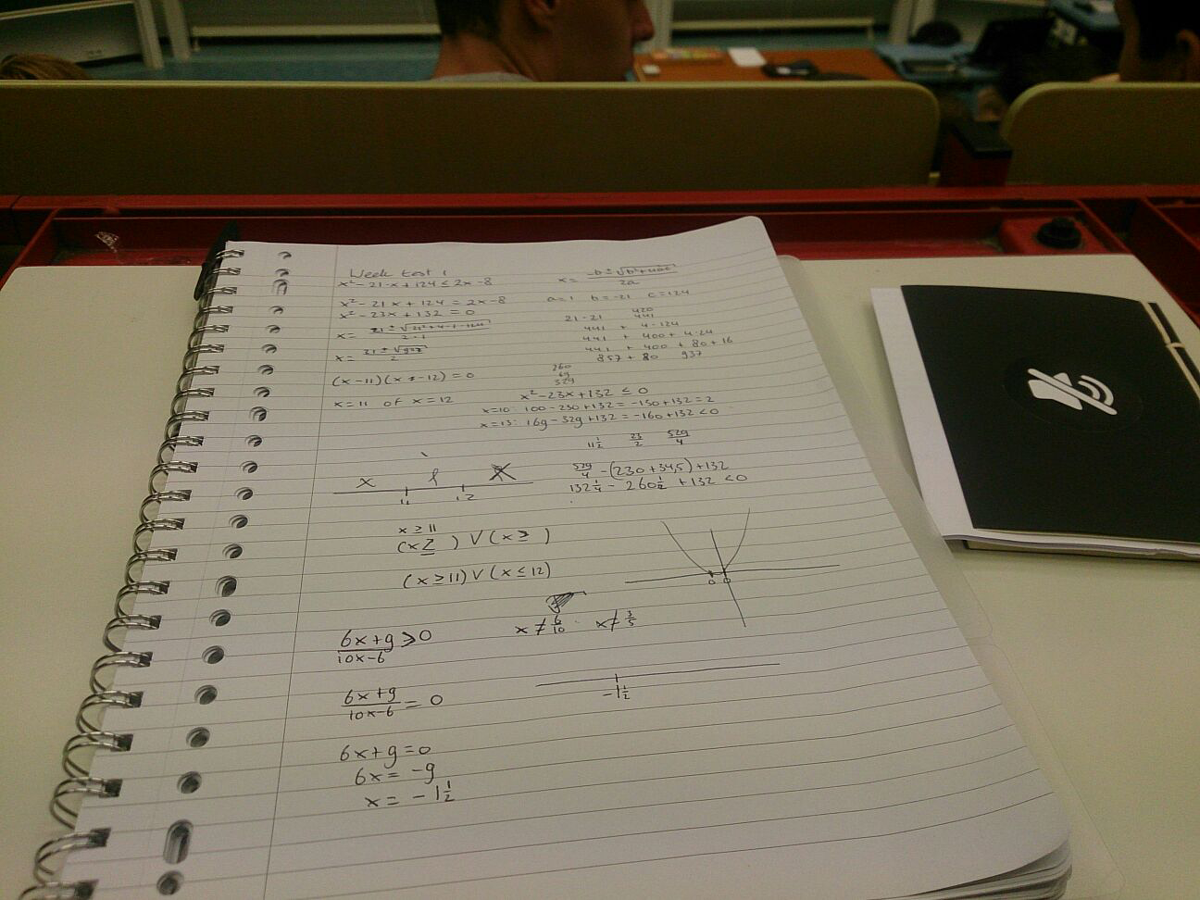 Week test 1
x² - 21·x + 124 ≤ 2x - 8
x² - 21x + 124 = 2x - 8
x² - 23x + 132 = 0
x =
x =
(x - 11)(x - 12) = 0
x = 11 of x = 12
x = -b ± √b² + 4ac / 2a
a = 1 b = -21 c = 124
21 - 21
420
441
441 + 4 - 124
441 + 400 + 4 - 24
441 + 400 + 80 + 16
857 + 80 937
260
69
329
x² - 23x + 132 ≤ 0
x=10 100 - 230 + 132 = -130 + 132 = 2
x=13: 169 - 329 + 132 = -160 + 132 < 0
11½ 23/2 529/4
529/4 - (230 + 34,5) + 132
132¼ - 260½ + 132 < 0
x
11 12
x ≥ 11
(x ≥ ) V (x ≥ )
(x ≥ 11) V (x ≤ 12)
6x+9 / 10x-6 ≥ 0
x ≠ 6/10 x ≠ 3/5
6x+9 / 10x-6 = 0
-1½
6x + 9 = 0
6x = -9
x = -1½